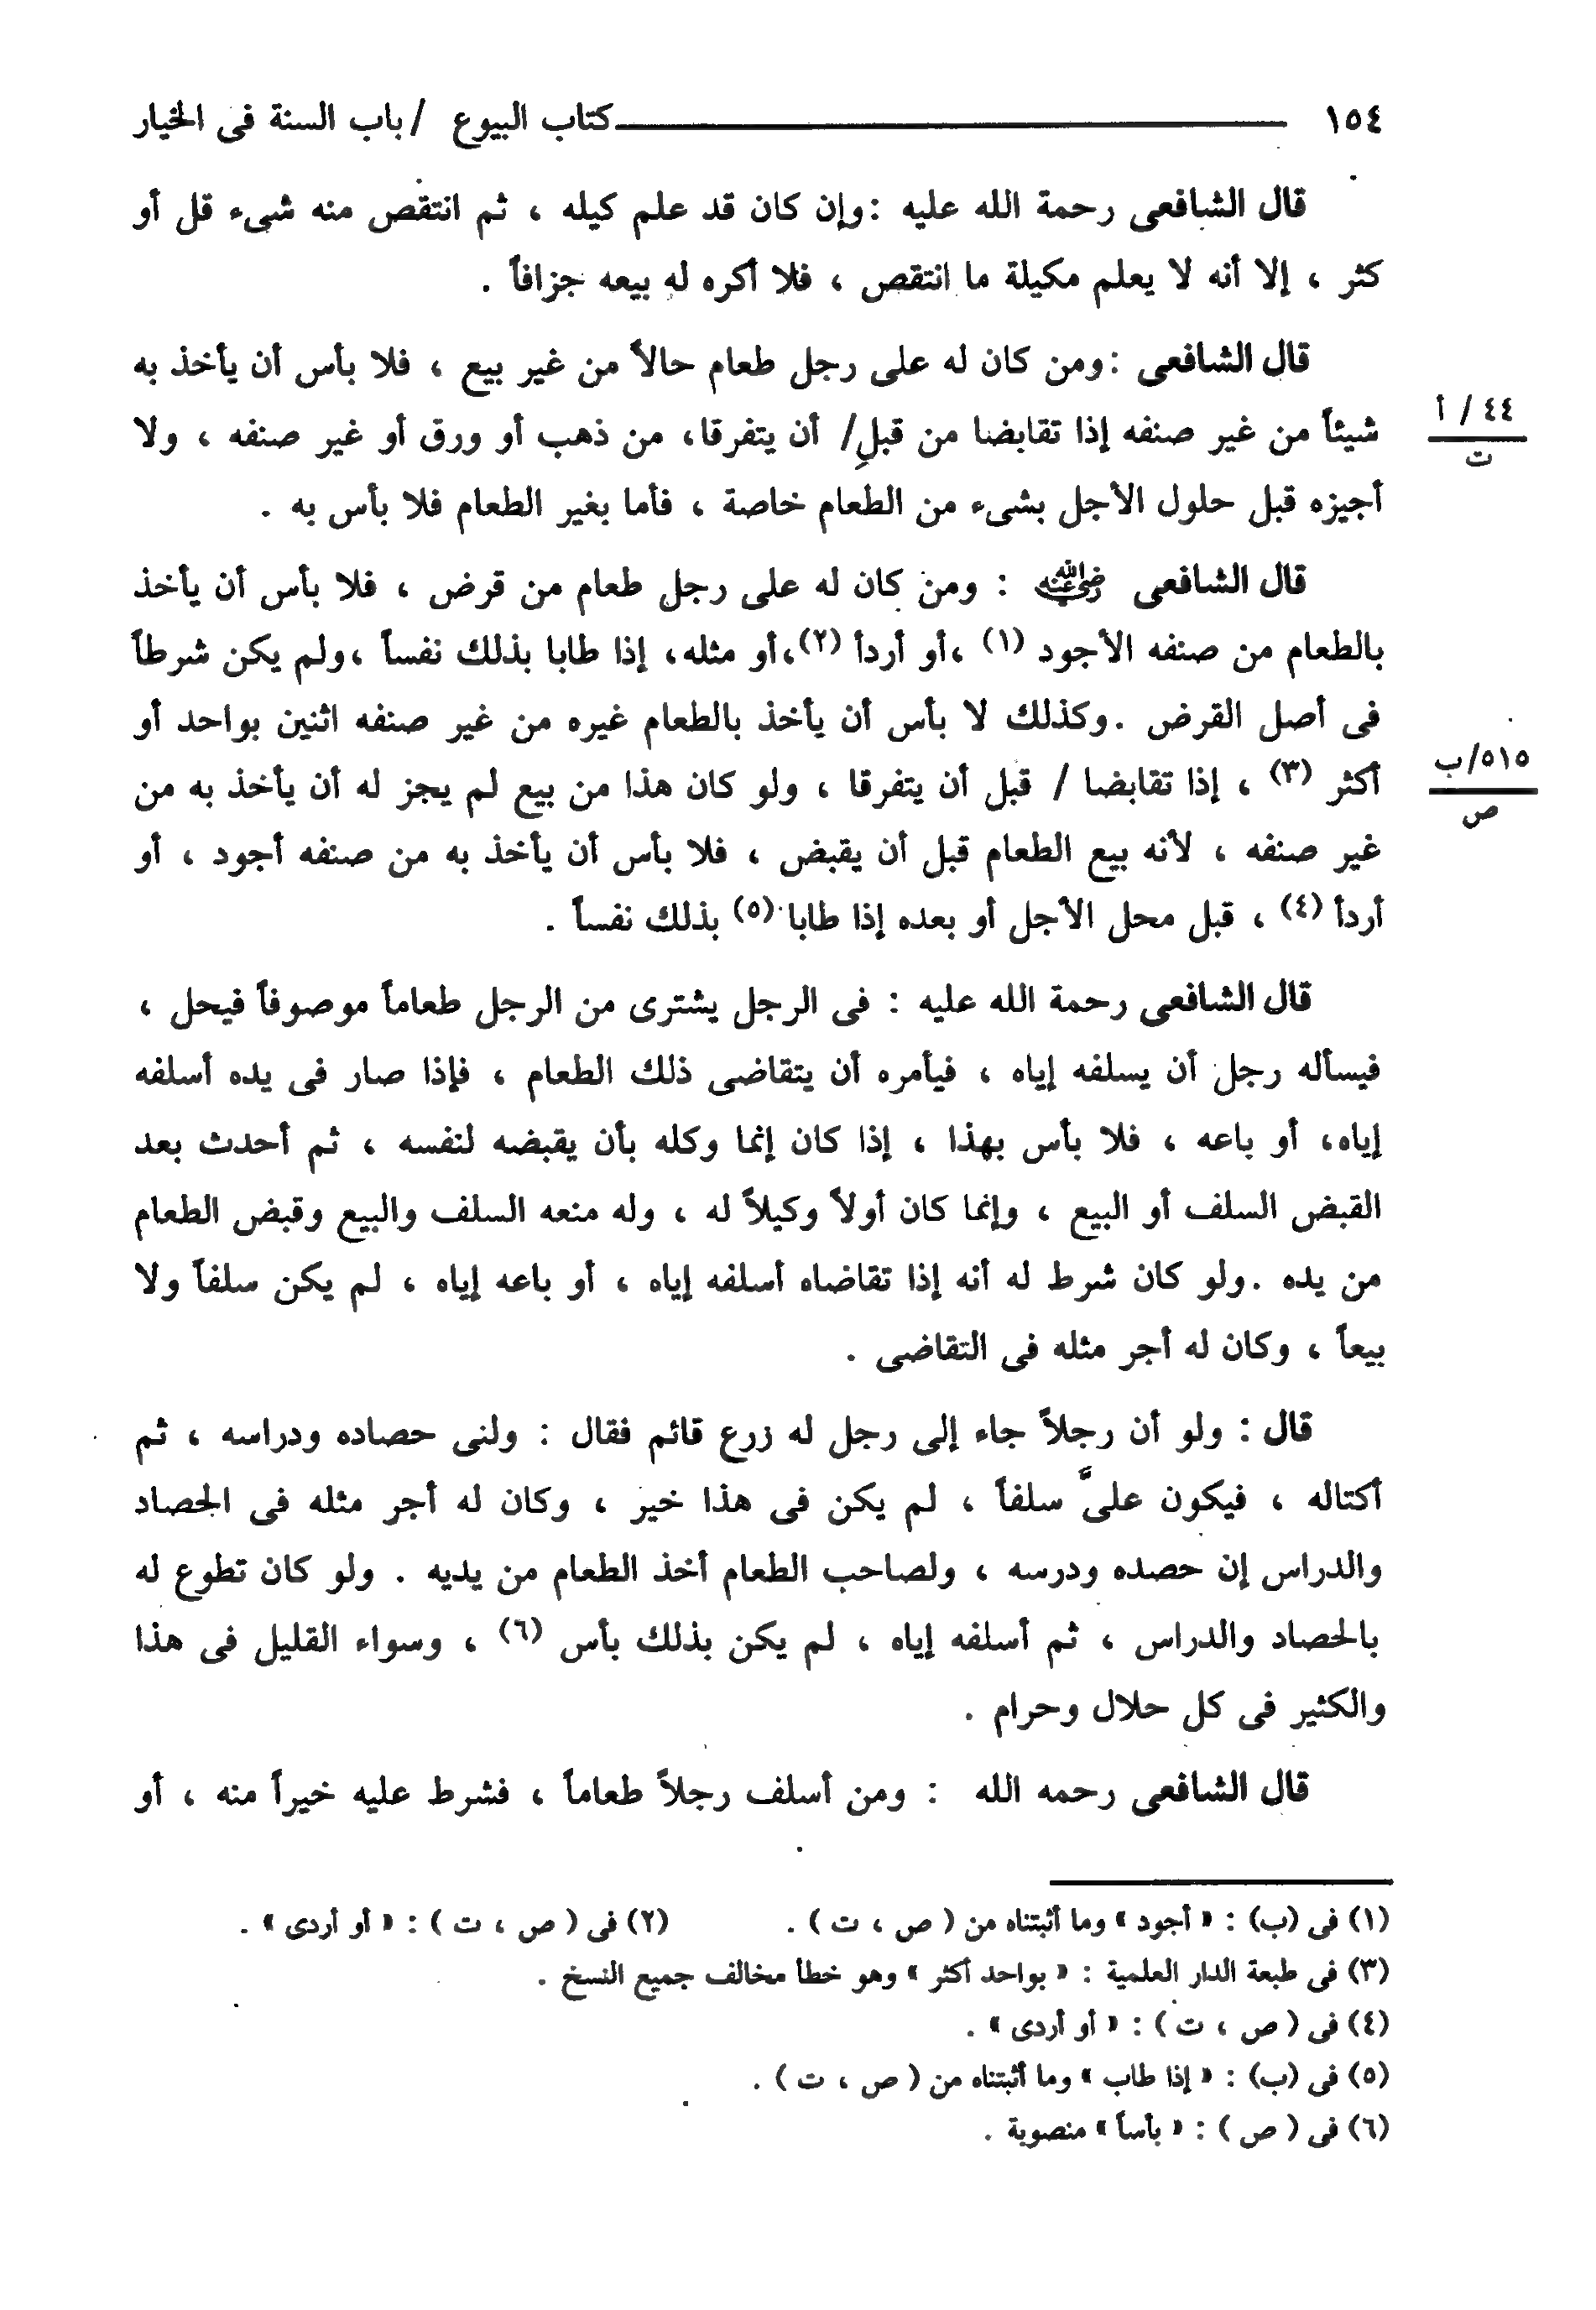 ١٥٤ كتاب البيوع / باب السنة فى الخيار
قال الشافعى رحمة الله عليه : وإن كان قد علم كيله ، ثم انتقص منه شىء قل أو
كثر ، إلا أنه لا يعلم مكيلة ما انتقص ، فلا أكره له بيعه جزافاً .
قال الشافعى : ومن كان له على رجل طعام حالاً من غير بيع ، فلا بأس أن يأخذ به
شيئاً من غير صنفه إذا تقابضا من قبلِ / أن يتفرقا، من ذهب أو ورق أو غير صنفه ، ولا
٤٤ / أ
ت
أجيزه قبل حلول الأجل بشىء من الطعام خاصة ، فأما بغير الطعام فلا بأس به .
قال الشافعى رضي الله عنه : ومن كان له على رجل طعام من قرض ، فلا بأس أن يأخذ
بالطعام من صنفه الأجود (١) ،أو أردأ (٢)،أو مثله، إذا طابا بذلك نفساً ،ولم يكن شرطاً
فى أصل القرض . وكذلك لا بأس أن يأخذ بالطعام غيره من غير صنفه اثنين بواحد أو
أكثر (٣) ، إذا تقابضا / قبل أن يتفرقا ، ولو كان هذا من بيع لم يجز له أن يأخذ به من
٥١٥/ب
ص
غير صنفه ، لأنه بيع الطعام قبل أن يقبض ، فلا بأس أن يأخذ به من صنفه أجود ، أو
أردأ (٤) ، قبل محل الأجل أو بعده إذا طابا (٥) بذلك نفساً .
قال الشافعى رحمة الله عليه : فى الرجل يشترى من الرجل طعاماً موصوفاً فيحل ،
فيسأله رجل أن يسلفه إياه ، فيأمره أن يتقاضى ذلك الطعام ، فإذا صار فى يده أسلفه
إياه، أو باعه ، فلا بأس بهذا ، إذا كان إنما وكله بأن يقبضه لنفسه ، ثم أحدث بعد
القبض السلف أو البيع ، وإنما كان أولاً وكيلاً له ، وله منعه السلف والبيع وقبض الطعام
من يده . ولو كان شرط له أنه إذا تقاضاه أسلفه إياه ، أو باعه إياه ، لم يكن سلفاً ولا
بيعاً ، وكان له أجر مثله فى التقاضى .
قال : ولو أن رجلاً جاء إلى رجل له زرع قائم فقال : ولنى حصاده ودراسه ، ثم
أكتاله ، فيكون علىَّ سلفاً ، لم يكن فى هذا خير ، وكان له أجر مثله فى الحصاد
والدراس إن حصده ودرسه ، ولصاحب الطعام أخذ الطعام من يديه . ولو كان تطوع له
بالحصاد والدراس ، ثم أسلفه إياه ، لم يكن بذلك بأس (٦) ، وسواء القليل فى هذا
والكثير فى كل حلال وحرام .
قال الشافعى رحمه الله : ومن أسلف رجلاً طعاماً ، فشرط عليه خيراً منه ، أو
(١) فى (ب) : « أجود » وما أثبتناه من ( ص ، ت ) . (٢) فى ( ص ، ت ) : « أو أردى » .
(٣) فى طبعة الدار العلمية : « بواحد أكثر » وهو خطأ مخالف جميع النسخ .
(٤) فى ( ص ، ت ) : « أو أردى » .
(٥) فى (ب) : « إذا طاب » وما أثبتناه من ( ص ، ت ) .
(٦) فى ( ص ) : « بأساً » منصوبة .